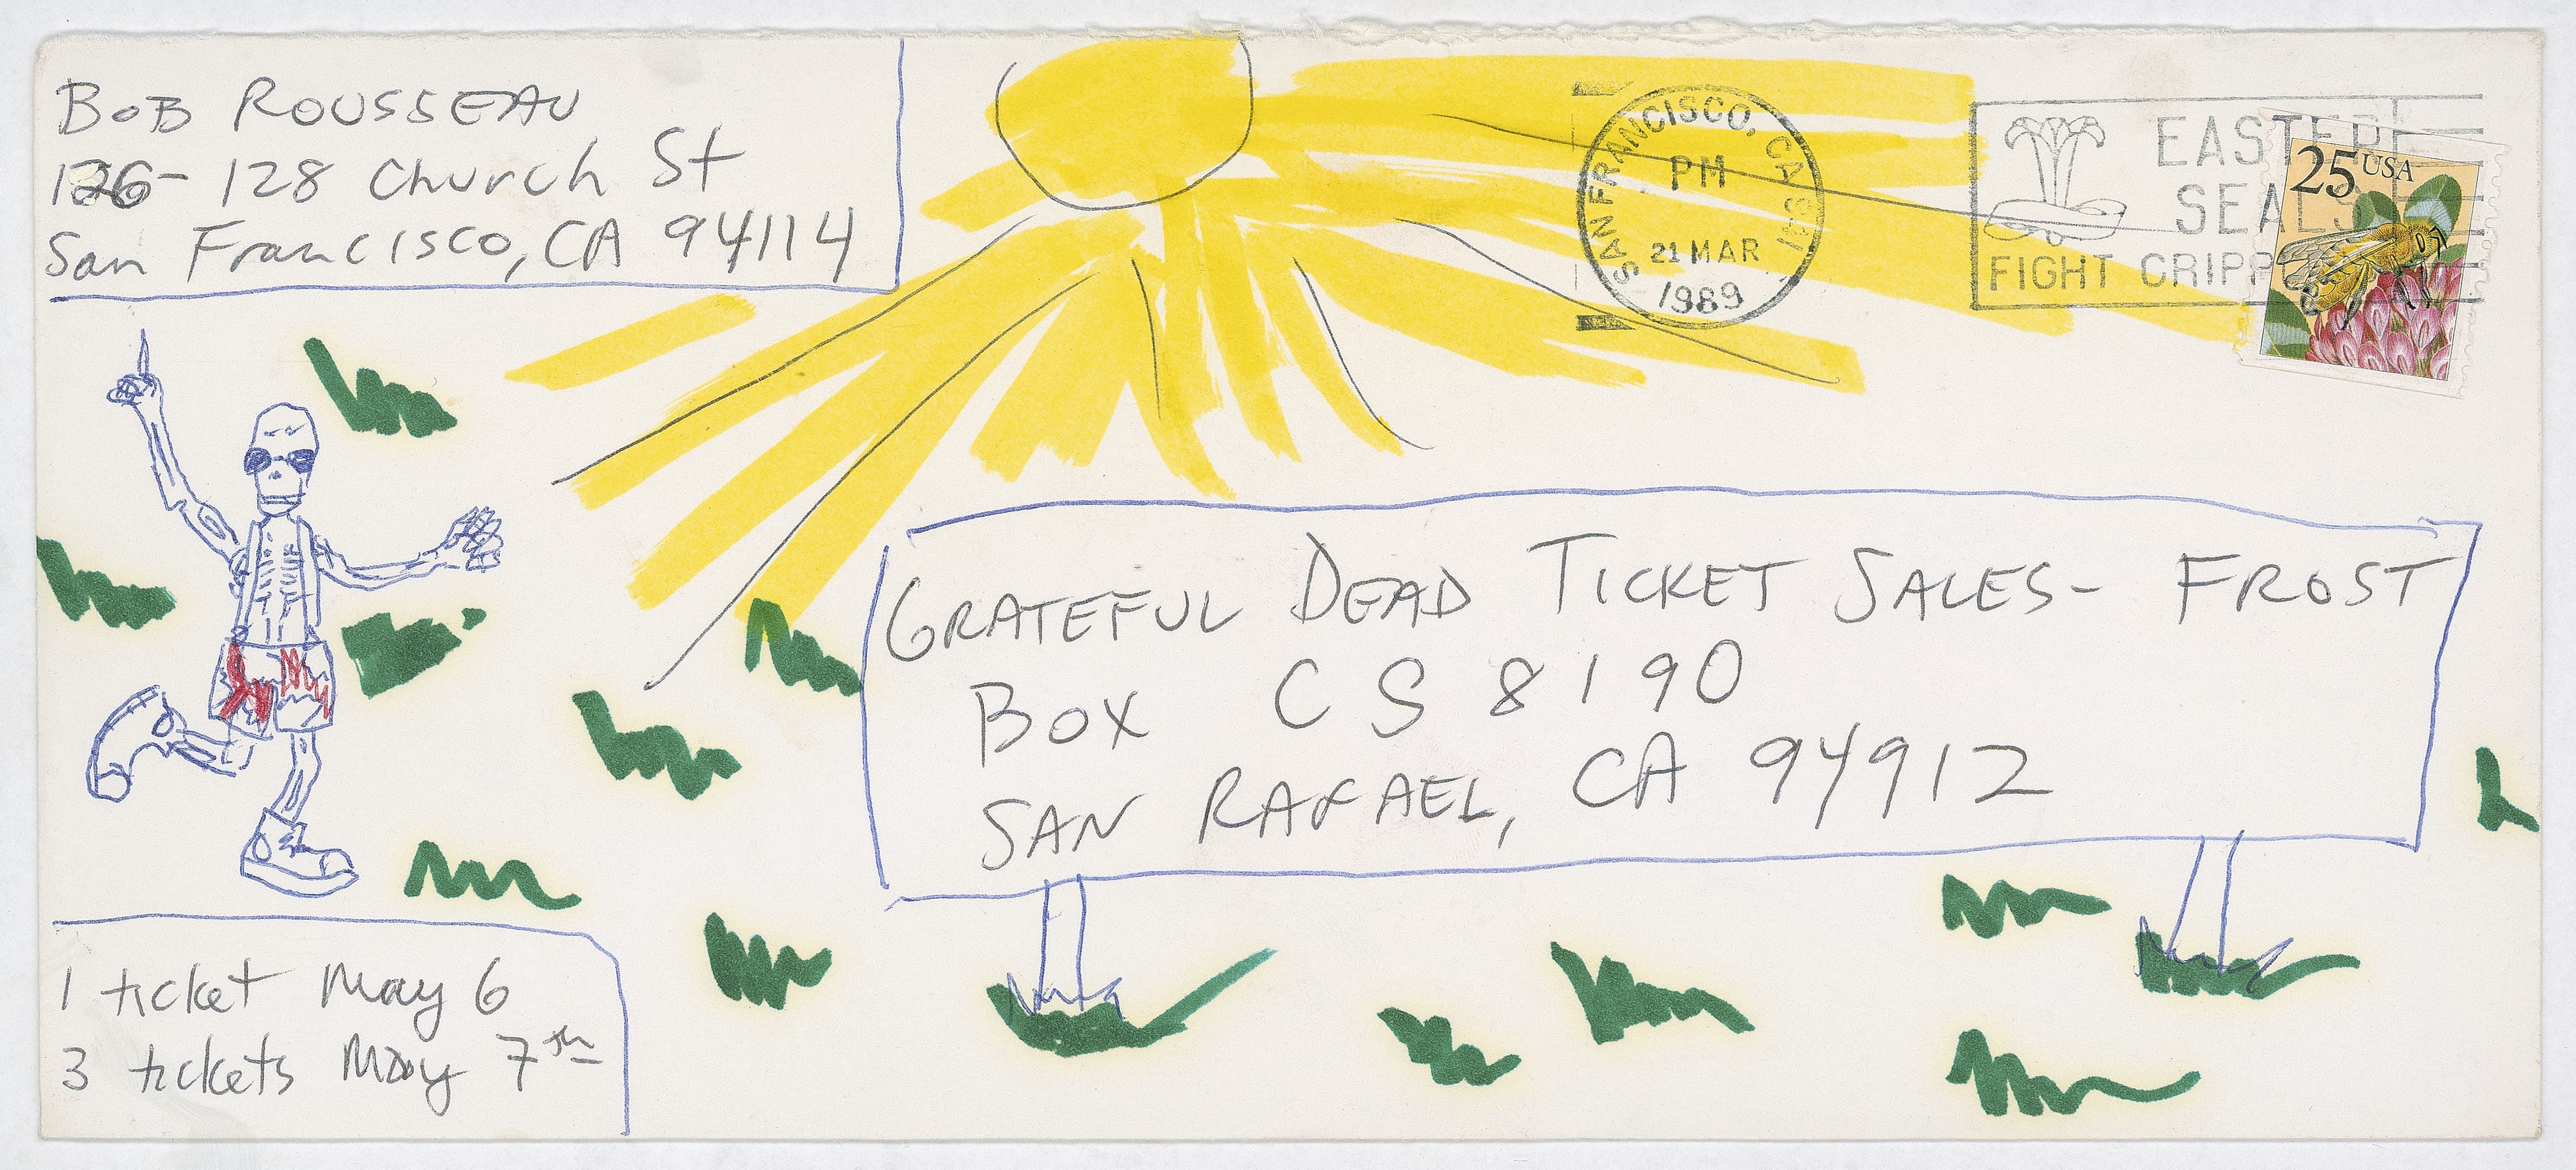 BOB ROUSSEAU
126- 128 Church St
San Francisco, CA 94114
SAN FRANCISCO, CA
PM
21 MAR
1989
EASTER
SEALS
FIGHT CRIPP
25 USA
GRATEFUL DEAD TICKET SALES- FROST
BOX CS 8190
SAN RAFAEL, CA 94912
1 ticket May 6
3 tickets May 7th